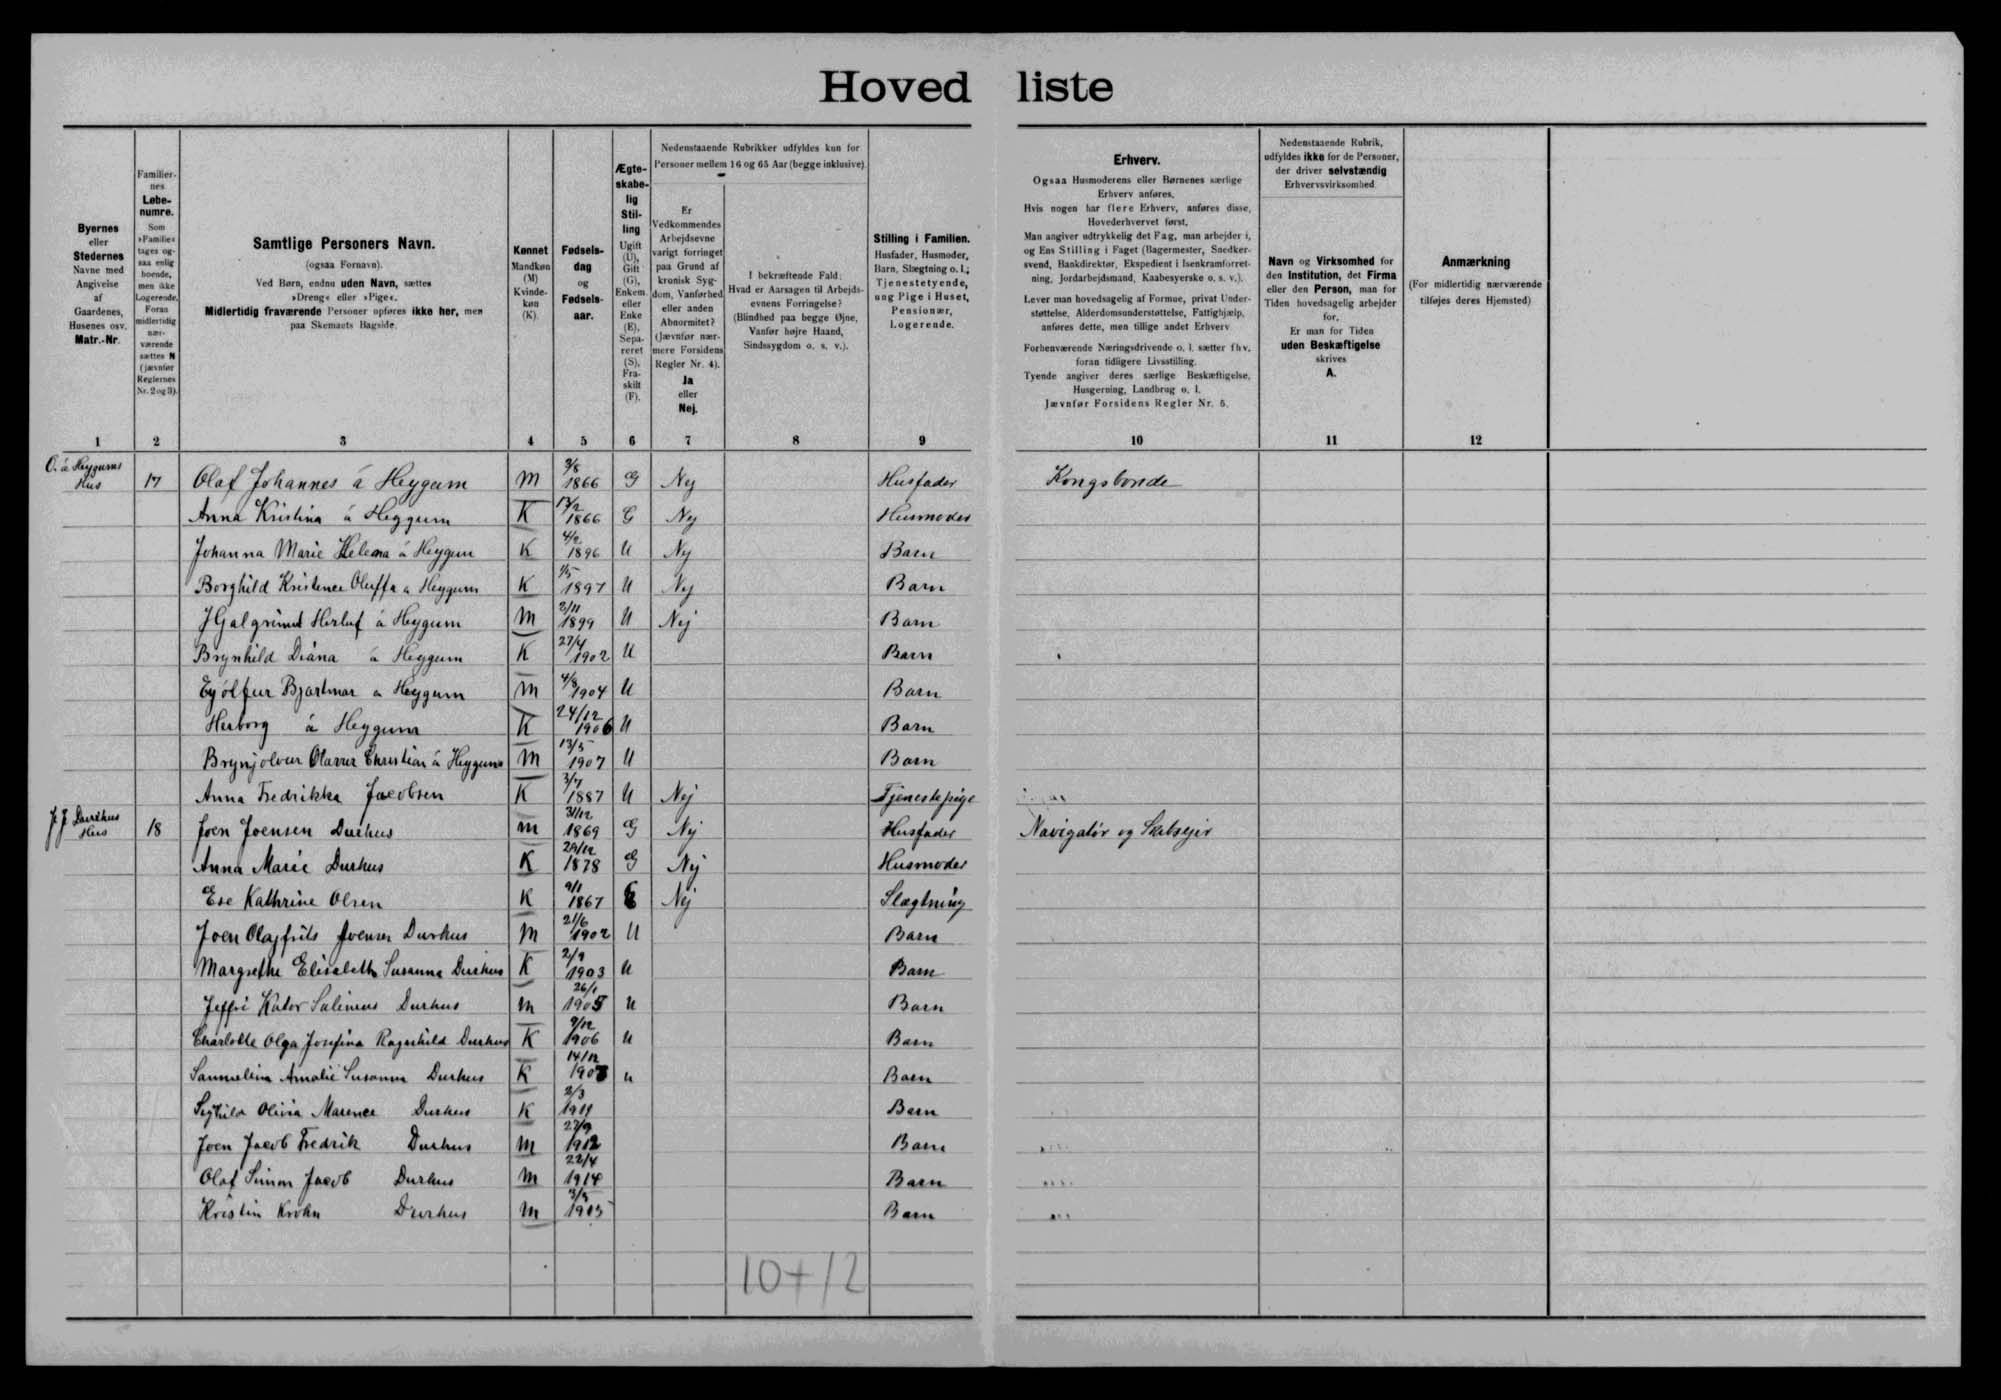 Hoved liste
Byernes
eller
Stedernes
Navne med
Angivelse
af
Gaardenes,
Husenes osv.
Matr.-Nr.
1
Familier-
nes
Løbe-
numre.
Som
»Familie«
tages og-
saa enlig
boende,
men ikke
Logerende.
Foran
midlertidig
nær-
værende
sættes N
(jævnfør
Reglernes
Nr. 2 og 3).
2
Samtlige Personers Navn.
(ogsaa Fornavn).
Ved Børn, endnu uden Navn, sættes
»Dreng« eller »Pige«.
Midlertidig fraværende Personer opføres ikke her, men
paa Skemaets Bagside.
3
Kønnet
Mandkøn
(M)
Kvinde-
køn
(K).
4
Fødsels-
dag
og
Fødsels-
aar.
5
Ægte-
skabe-
lig
Stil-
ling
Ugift
(U),
Gift
(G),
Enkem.
eller
Enke
(E),
Sepa-
reret
(S),
Fra-
skilt
(F).
6
Nedenstaaende Rubrikker udfyldes kun for
Personer mellem 16 og 65 Aar (begge inklusive).
Er
Vedkommendes
Arbejdsevne
varigt forringet
paa Grund af
kronisk Syg-
dom, Vanførhed
eller anden
Abnormitet?
(Jævnfør nær-
mere Forsidens
Regler Nr. 4).
Ja
eller
Nej.
7
I bekræftende Fald:
Hvad er Aarsagen til Arbejds-
evnens Forringelse?
(Blindhed paa begge Øjne,
Vanfør højre Haand,
Sindssygdom o. s. v.).
8
Stilling i Familien.
Husfader, Husmoder,
Barn, Slægtning o. l.;
Tjenestetyende,
ung Pige i Huset,
Pensionær,
Logerende.
9
Erhverv.
Ogsaa Husmoderens eller Børnenes særlige
Erhverv anføres.
Hvis nogen har flere Erhverv, anføres disse,
Hovederhvervet først.
Man angiver udtrykkelig det Fag, man arbejder i,
og Ens Stilling i Faget (Bagermester, Snedker-
svend, Bankdirektør, Ekspedient i Isenkramforret-
ning, Jordarbejdsmand, Kaabesyerske o. s. v.).
Lever man hovedsagelig af Formue, privat Under-
støttelse, Alderdomsunderstøttelse, Fattighjælp,
anføres dette, men tillige andet Erhverv
Forhenværende Næringsdrivende o. l. sætter fhv.
foran tidligere Livsstilling.
Tyende angiver deres særlige Beskæftigelse,
Husgerning, Landbrug o. l.
Jævnfør Forsidens Regler Nr. 5.
10
Nedenstaaende Rubrik,
udfyldes ikke for de Personer,
der driver selvstændig
Erhvervsvirksomhed
Navn og Virksomhed for
den Institution, det Firma
eller den Person, man for
Tiden hovedsagelig arbejder
for.
Er man for Tiden
uden Beskæftigelse
skrives
A.
11
Anmærkning
(For midlertidig nærværende
tilføjes deres Hjemsted)
12
O. á Heygums Hus 17 Olaf Johannes á Heygum M 9/8 1866 G Nej Husfader Kongsbonde
Anna Kristina á Heygum K 13/2 1866 G Nej Husmoder
Johanna Marie Helena á Heygum K 4/2 1896 U Nej Barn
Borghild Kristence Oluffa a Heygum K 1/5 1897 U Nej Barn
Herluf á Heygum M 2/11 1899 U Nej Barn
Brynhild Diana á Heygum K 27/4 1902 U Barn
Eyólfur Bjartmar a Heygum M 4/8 1904 U Barn
Herborg á Heygum K 24/12 1906 U Barn
Brynjolvur Olavur Christian á Heygum M 13/5 1907 U Barn
Anna Fredrikka Jacobsen K 3/7 1887 U Nej Tjenestepige
J J Durhus Hus 18 Joen Joensen Durhus M 31/12 1869 G Nej Husfader Navigatör og Skibsejer
Anna Marie Durhus K 29/12 1878 G Nej Husmoder
Ese Kathrine Olsen K 9/1 1867 E Nej Slægtning
Joen Olajfrits Joensen Durhus M 21/6 1902 U Barn
Margrethe Elisabeth Susanna Durhus K 2/9 1903 U Barn
Durhus M 26/1 1905 U Barn
Charlotte Olga Josefina Ragnhild Durhus K 9/12 1906 U Barn
Sanneline Amalie Susanna Durhus K 14/12 U Barn
Olivia Marence Durhus K 2/3 1911 Barn
Joen Jacob Fredrik Durhus M 27/9 1912 Barn
Olaf Simon Jacob Durhus M 22/4 1914 Barn
Kristin Krohn Durhus M 3/5 Barn
10+12